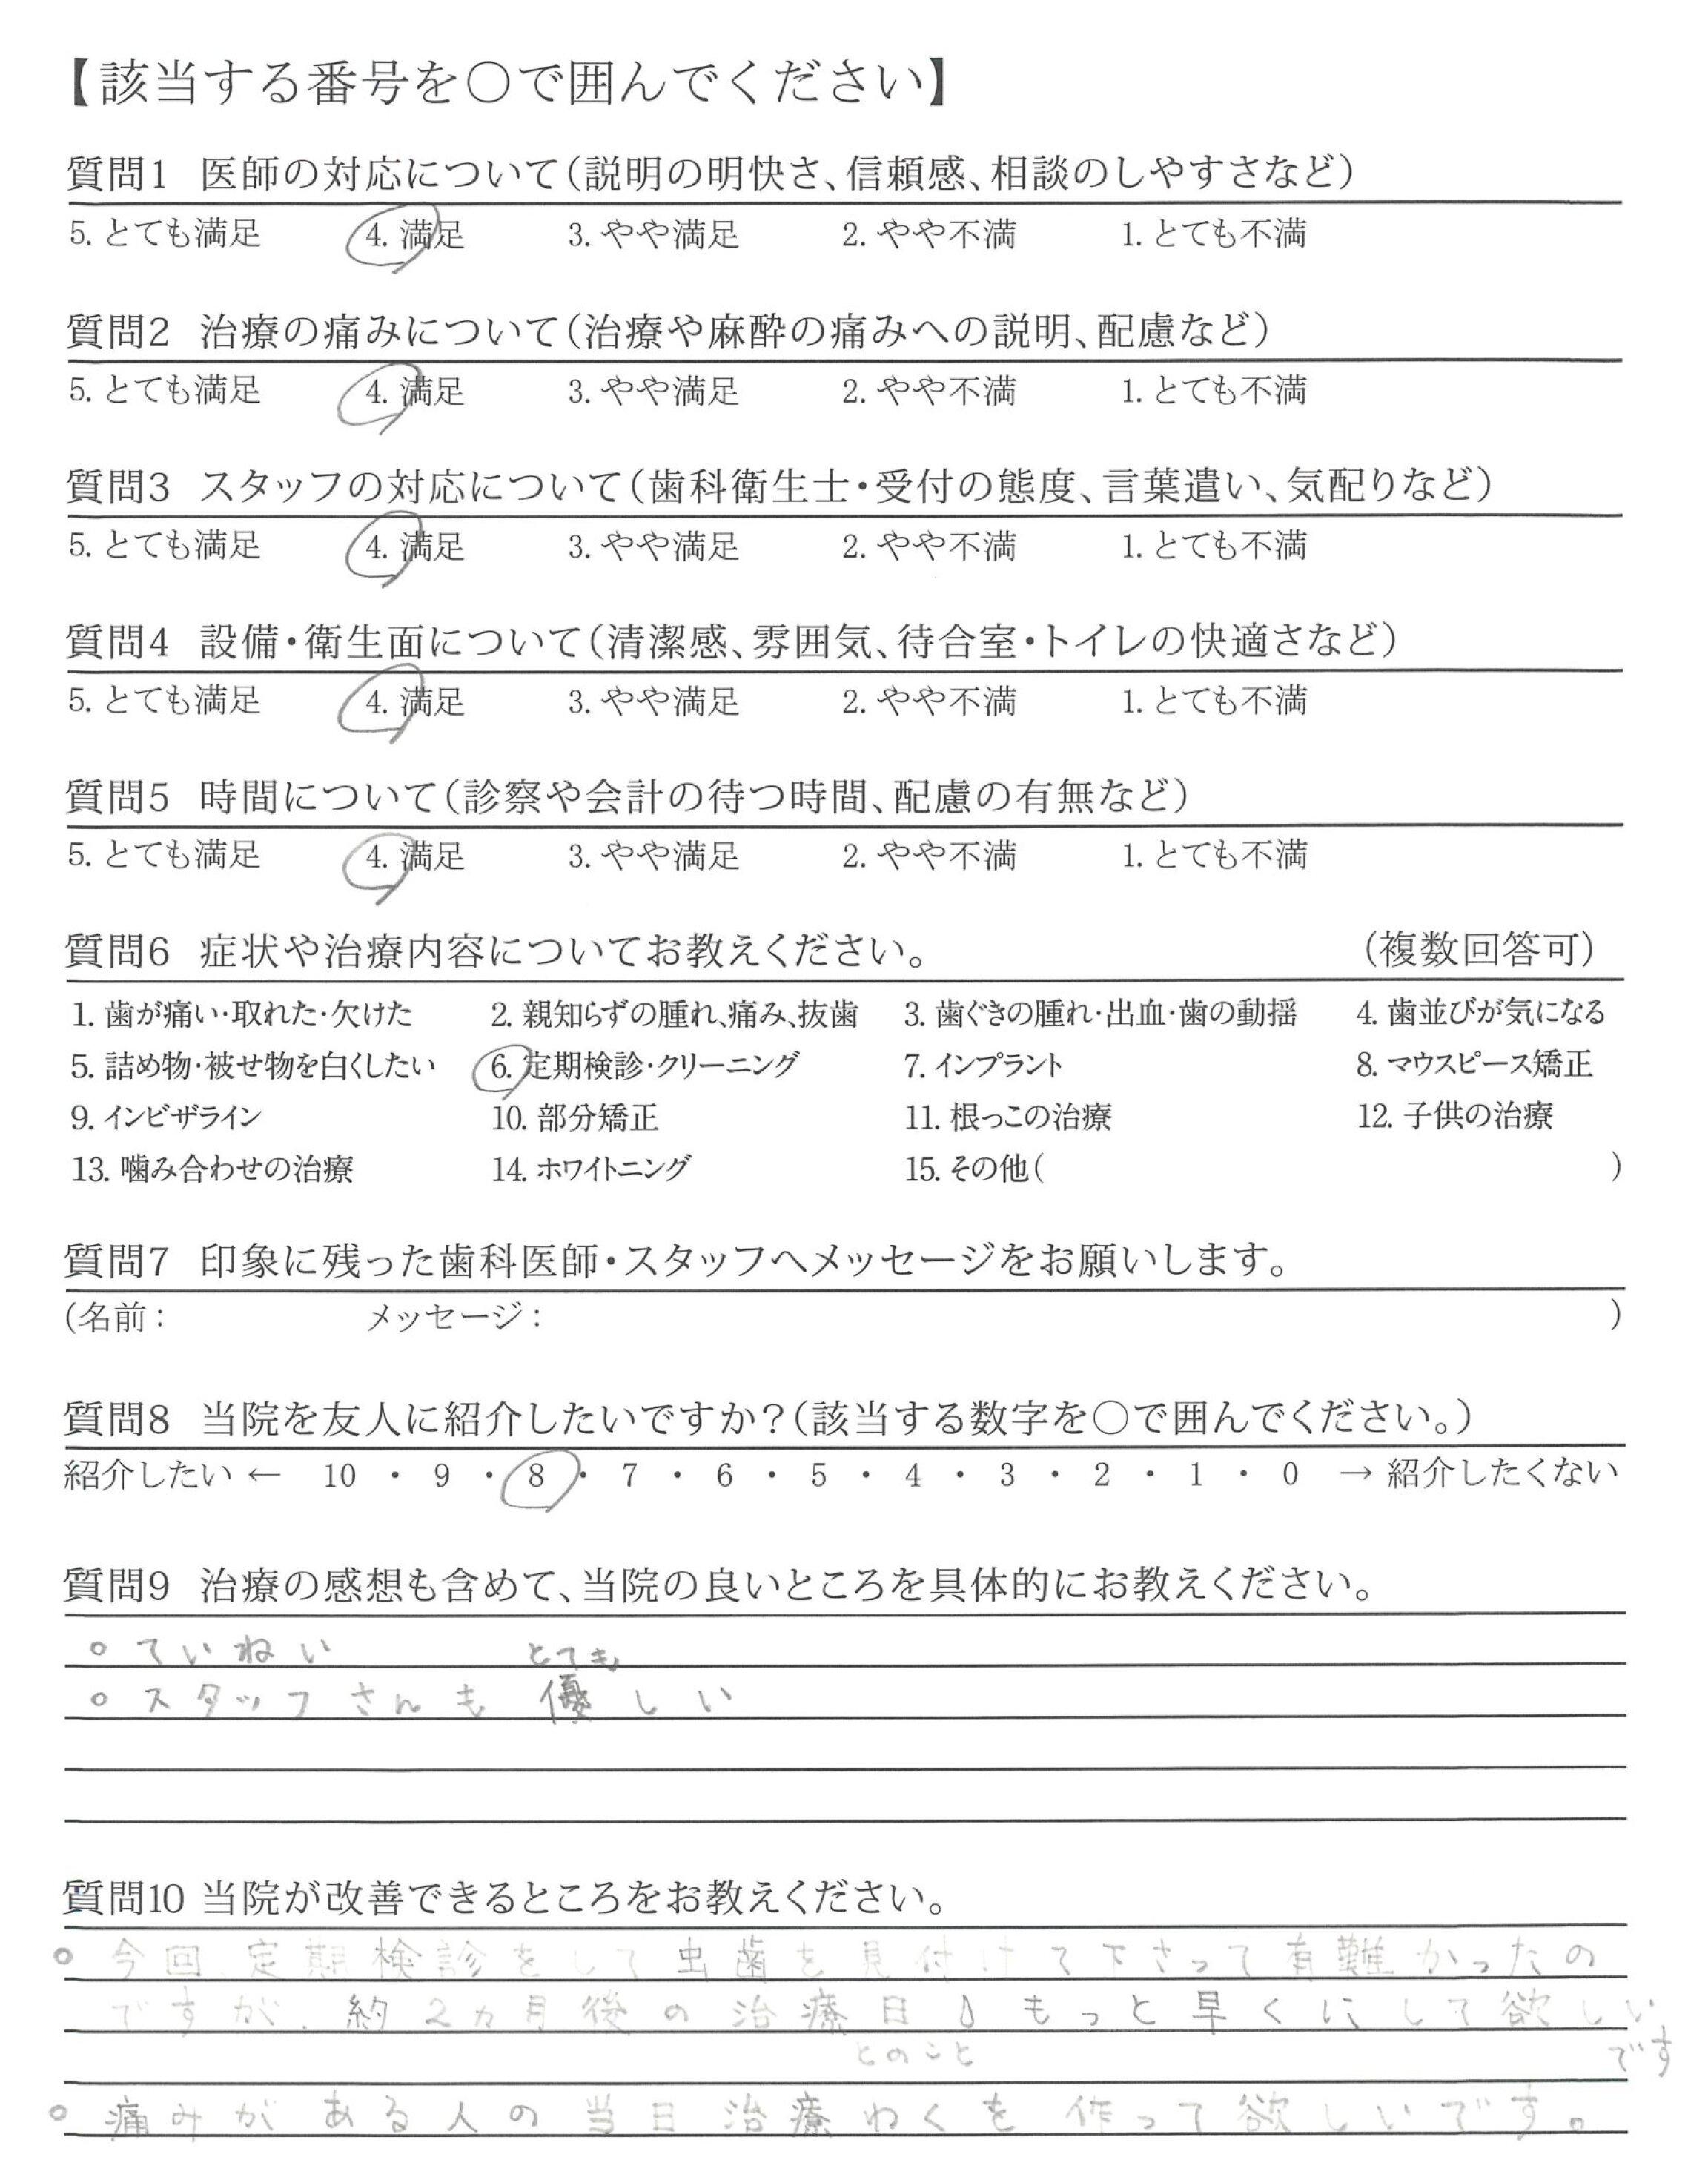 【該当する番号を〇で囲んでください】
質問1 医師の対応について(説明の明快さ、信頼感、相談のしやすさなど)
5. とても満足 4. 満足 3. やや満足 2. やや不満 1. とても不満
質問2 治療の痛みについて(治療や麻酔の痛みへの説明、配慮など)
5. とても満足 4. 満足 3. やや満足 2. やや不満 1. とても不満
質問3 スタッフの対応について(歯科衛生士・受付の態度、言葉遣い、気配りなど)
5. とても満足 4. 満足 3. やや満足 2. やや不満 1. とても不満
質問4 設備・衛生面について(清潔感、雰囲気、待合室・トイレの快適さなど)
5. とても満足 4. 満足 3. やや満足 2. やや不満 1. とても不満
質問5 時間について(診察や会計の待つ時間、配慮の有無など)
5. とても満足 4. 満足 3. やや満足 2. やや不満 1. とても不満
質問6 症状や治療内容についてお教えください。 (複数回答可)
1. 歯が痛い・取れた・欠けた 2. 親知らずの腫れ、痛み、抜歯 3. 歯ぐきの腫れ・出血・歯の動揺 4. 歯並びが気になる
5. 詰め物・被せ物を白くしたい 6. 定期検診・クリーニング 7. インプラント 8. マウスピース矯正
9. インビザライン 10. 部分矯正 11. 根っこの治療 12. 子供の治療
13. 噛み合わせの治療 14. ホワイトニング 15. その他( )
質問7 印象に残った歯科医師・スタッフへメッセージをお願いします。
(名前: メッセージ: )
質問8 当院を友人に紹介したいですか?(該当する数字を〇で囲んでください。)
紹介したい ← 10 ・ 9 ・ 8 ・ 7 ・ 6 ・ 5 ・ 4 ・ 3 ・ 2 ・ 1 ・ 0 → 紹介したくない
質問9 治療の感想も含めて、当院の良いところを具体的にお教えください。
○ ていねい
とても
○ スタッフさんも優しい
質問10 当院が改善できるところをお教えください。
○ 今回、定期検診をして虫歯を見付けて下さって有難かったの
ですが、約2ヵ月後の治療日 もっと早くにして欲しい
とのこと です
○ 痛みがある人の当日治療わくを作って欲しいです。